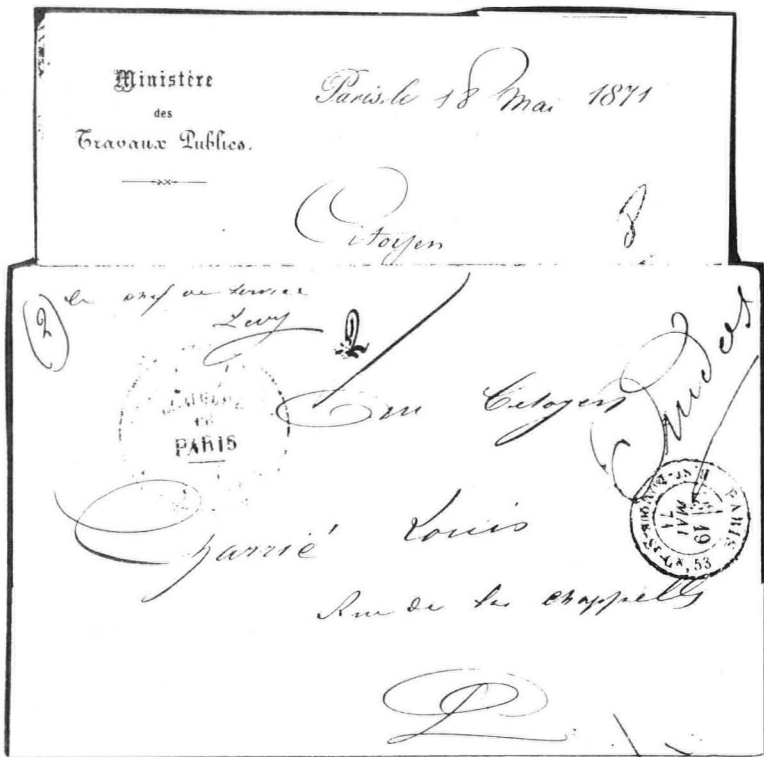 Ministère
des
Travaux Publics.
Paris, le 18 Mai 1871
Citoyen
2
le chef de service
Levy
PARIS
Au Citoyen
Charrié Louis
Rue de la chappelle
PARIS
19
MAI
71
53